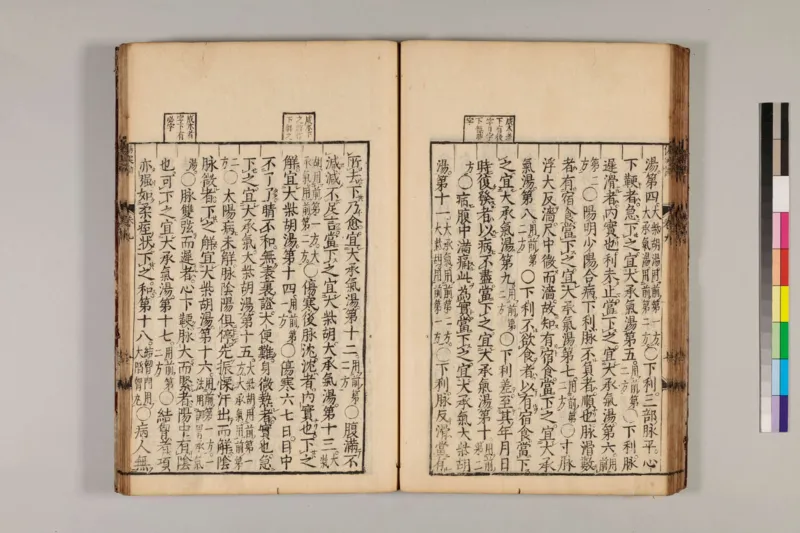 湯第四大柴胡湯用前第一方大承氣湯用前第二方○下利三部脉平心
下鞕者急下之宜大承氣湯第五用前第二方○下利脉
遲滑者內實也利未止當下之宜大承氣湯第六用前
第二方○陽明少陽合病下利脉不負者順也脉滑數
者有宿食當下之宜大承氣湯第七用前第二方○寸脉
浮大反濇尺中微而濇故知有宿食當下之宜大承
氣湯第八用前第二方○下利不欲食者以有宿食當下
之宜大承氣湯第九用前第二方○下利差至其年月日
時復發者以病不盡當下之宜大承氣湯第十用前第二
方○病腹中滿痛此為實當下之宜大承氣大柴胡
湯第十一大承氣用前第二方大柴胡用前第一方○下利脉反滑當有
所去下乃愈宜大承氣湯第十二用前第二方○腹滿不
減減不足言當下之宜大柴胡大承氣湯第十三大柴
胡用前第一方大承氣用前第二方○傷寒後脉沈沈者內實也下之
解宜大柴胡湯第十四用前第一方○傷寒六七日目中
不了了睛不和無表裏證大便難身微熱者實也急
下之宜大承氣大柴胡湯第十五大柴胡用前第一方大承氣用前第
二方○太陽病未解脉陰陽俱停先振慄汗出而解陰
脉微者下之解宜大柴胡湯第十六用前第一方一法用調胃承氣
湯○脉雙弦而遲者心下鞕脉大而緊者陽中有陰
也可下之宜大承氣湯第十七用前第二方○結胷者項
亦强如柔痓狀下之和第十八結胷門用大陷胷丸○病人無